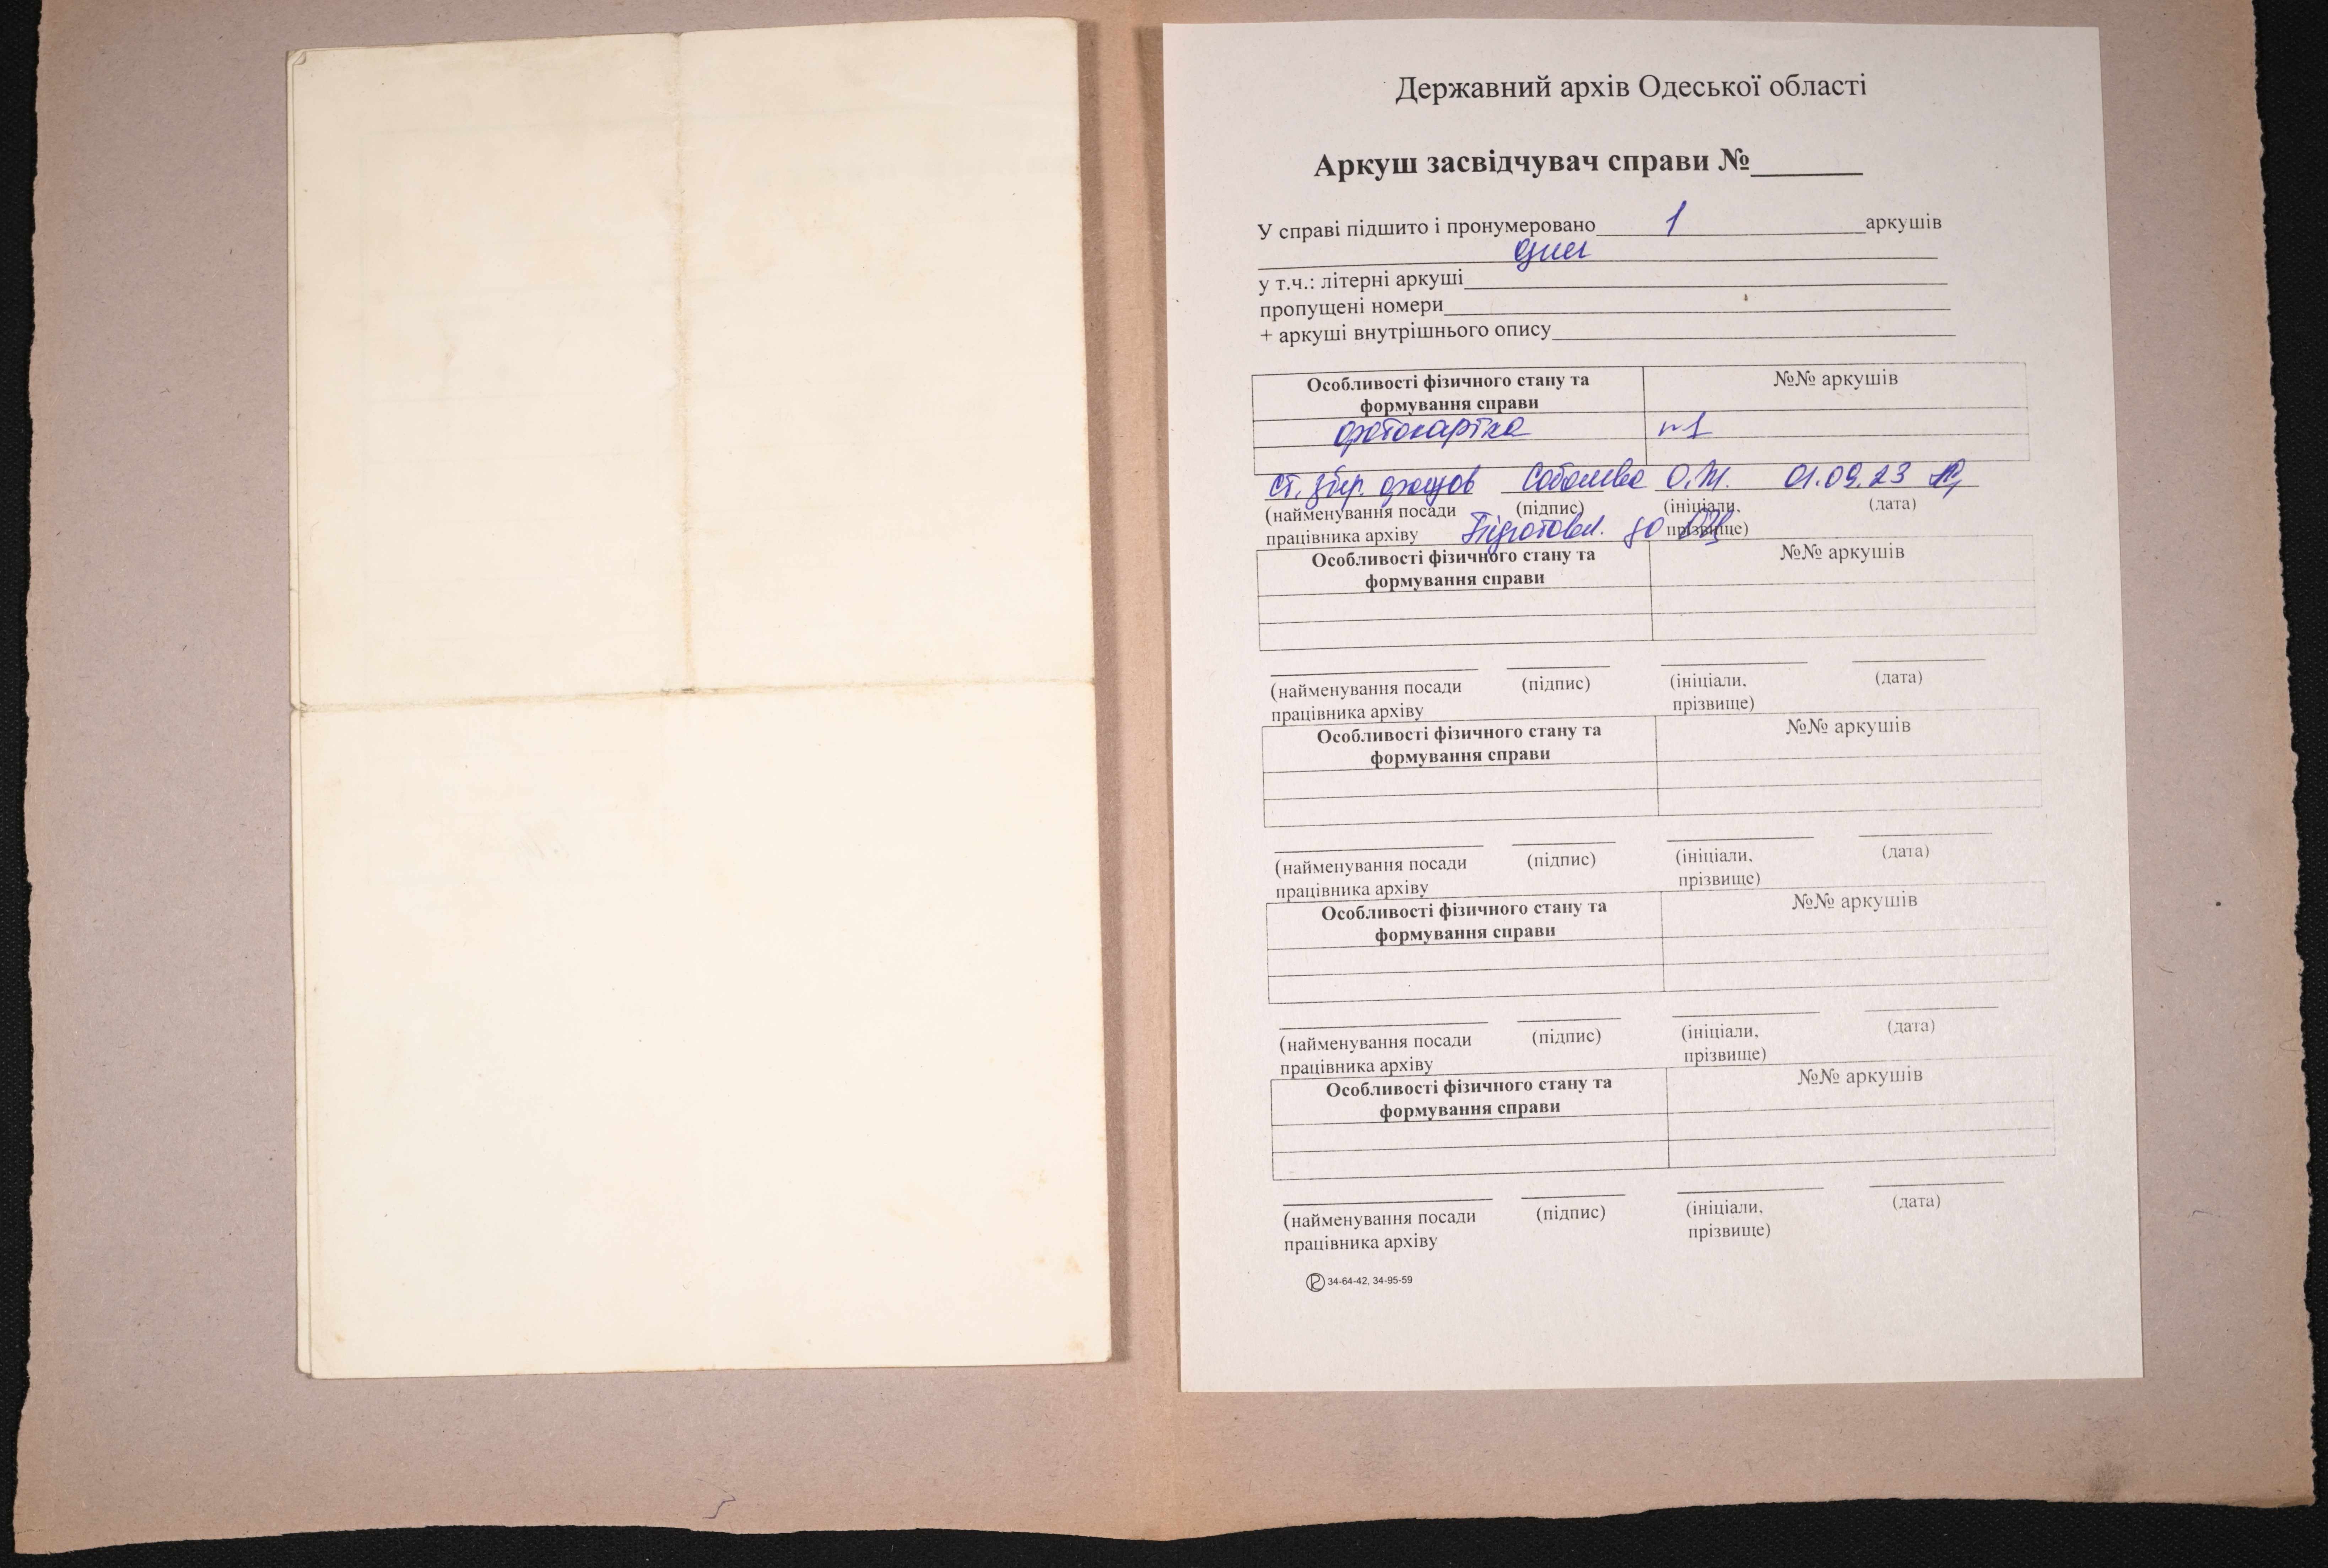 Державний архів Одеської області
Аркуш засвідчувач справи №______
У справі підшито і пронумеровано 1 аркушів
один
у т.ч.: літерні аркуші
пропущені номери
+ аркуші внутрішнього опису
Особливості фізичного стану та формування справи №№ аркушів
фотокартка №1
ст. збер. фондів Соболева О.М. 01.09.23
(найменування посади (підпис) (ініціали, (дата)
працівника архіву прізвище)
Підготовл. до
Особливості фізичного стану та №№ аркушів
формування справи
(найменування посади (підпис) (ініціали, (дата)
працівника архіву прізвище)
Особливості фізичного стану та №№ аркушів
формування справи
(найменування посади (підпис) (ініціали, (дата)
працівника архіву прізвище)
Особливості фізичного стану та №№ аркушів
формування справи
(найменування посади (підпис) (ініціали, (дата)
працівника архіву прізвище)
Особливості фізичного стану та №№ аркушів
формування справи
(найменування посади (підпис) (ініціали, (дата)
працівника архіву прізвище)
34-64-42, 34-95-59